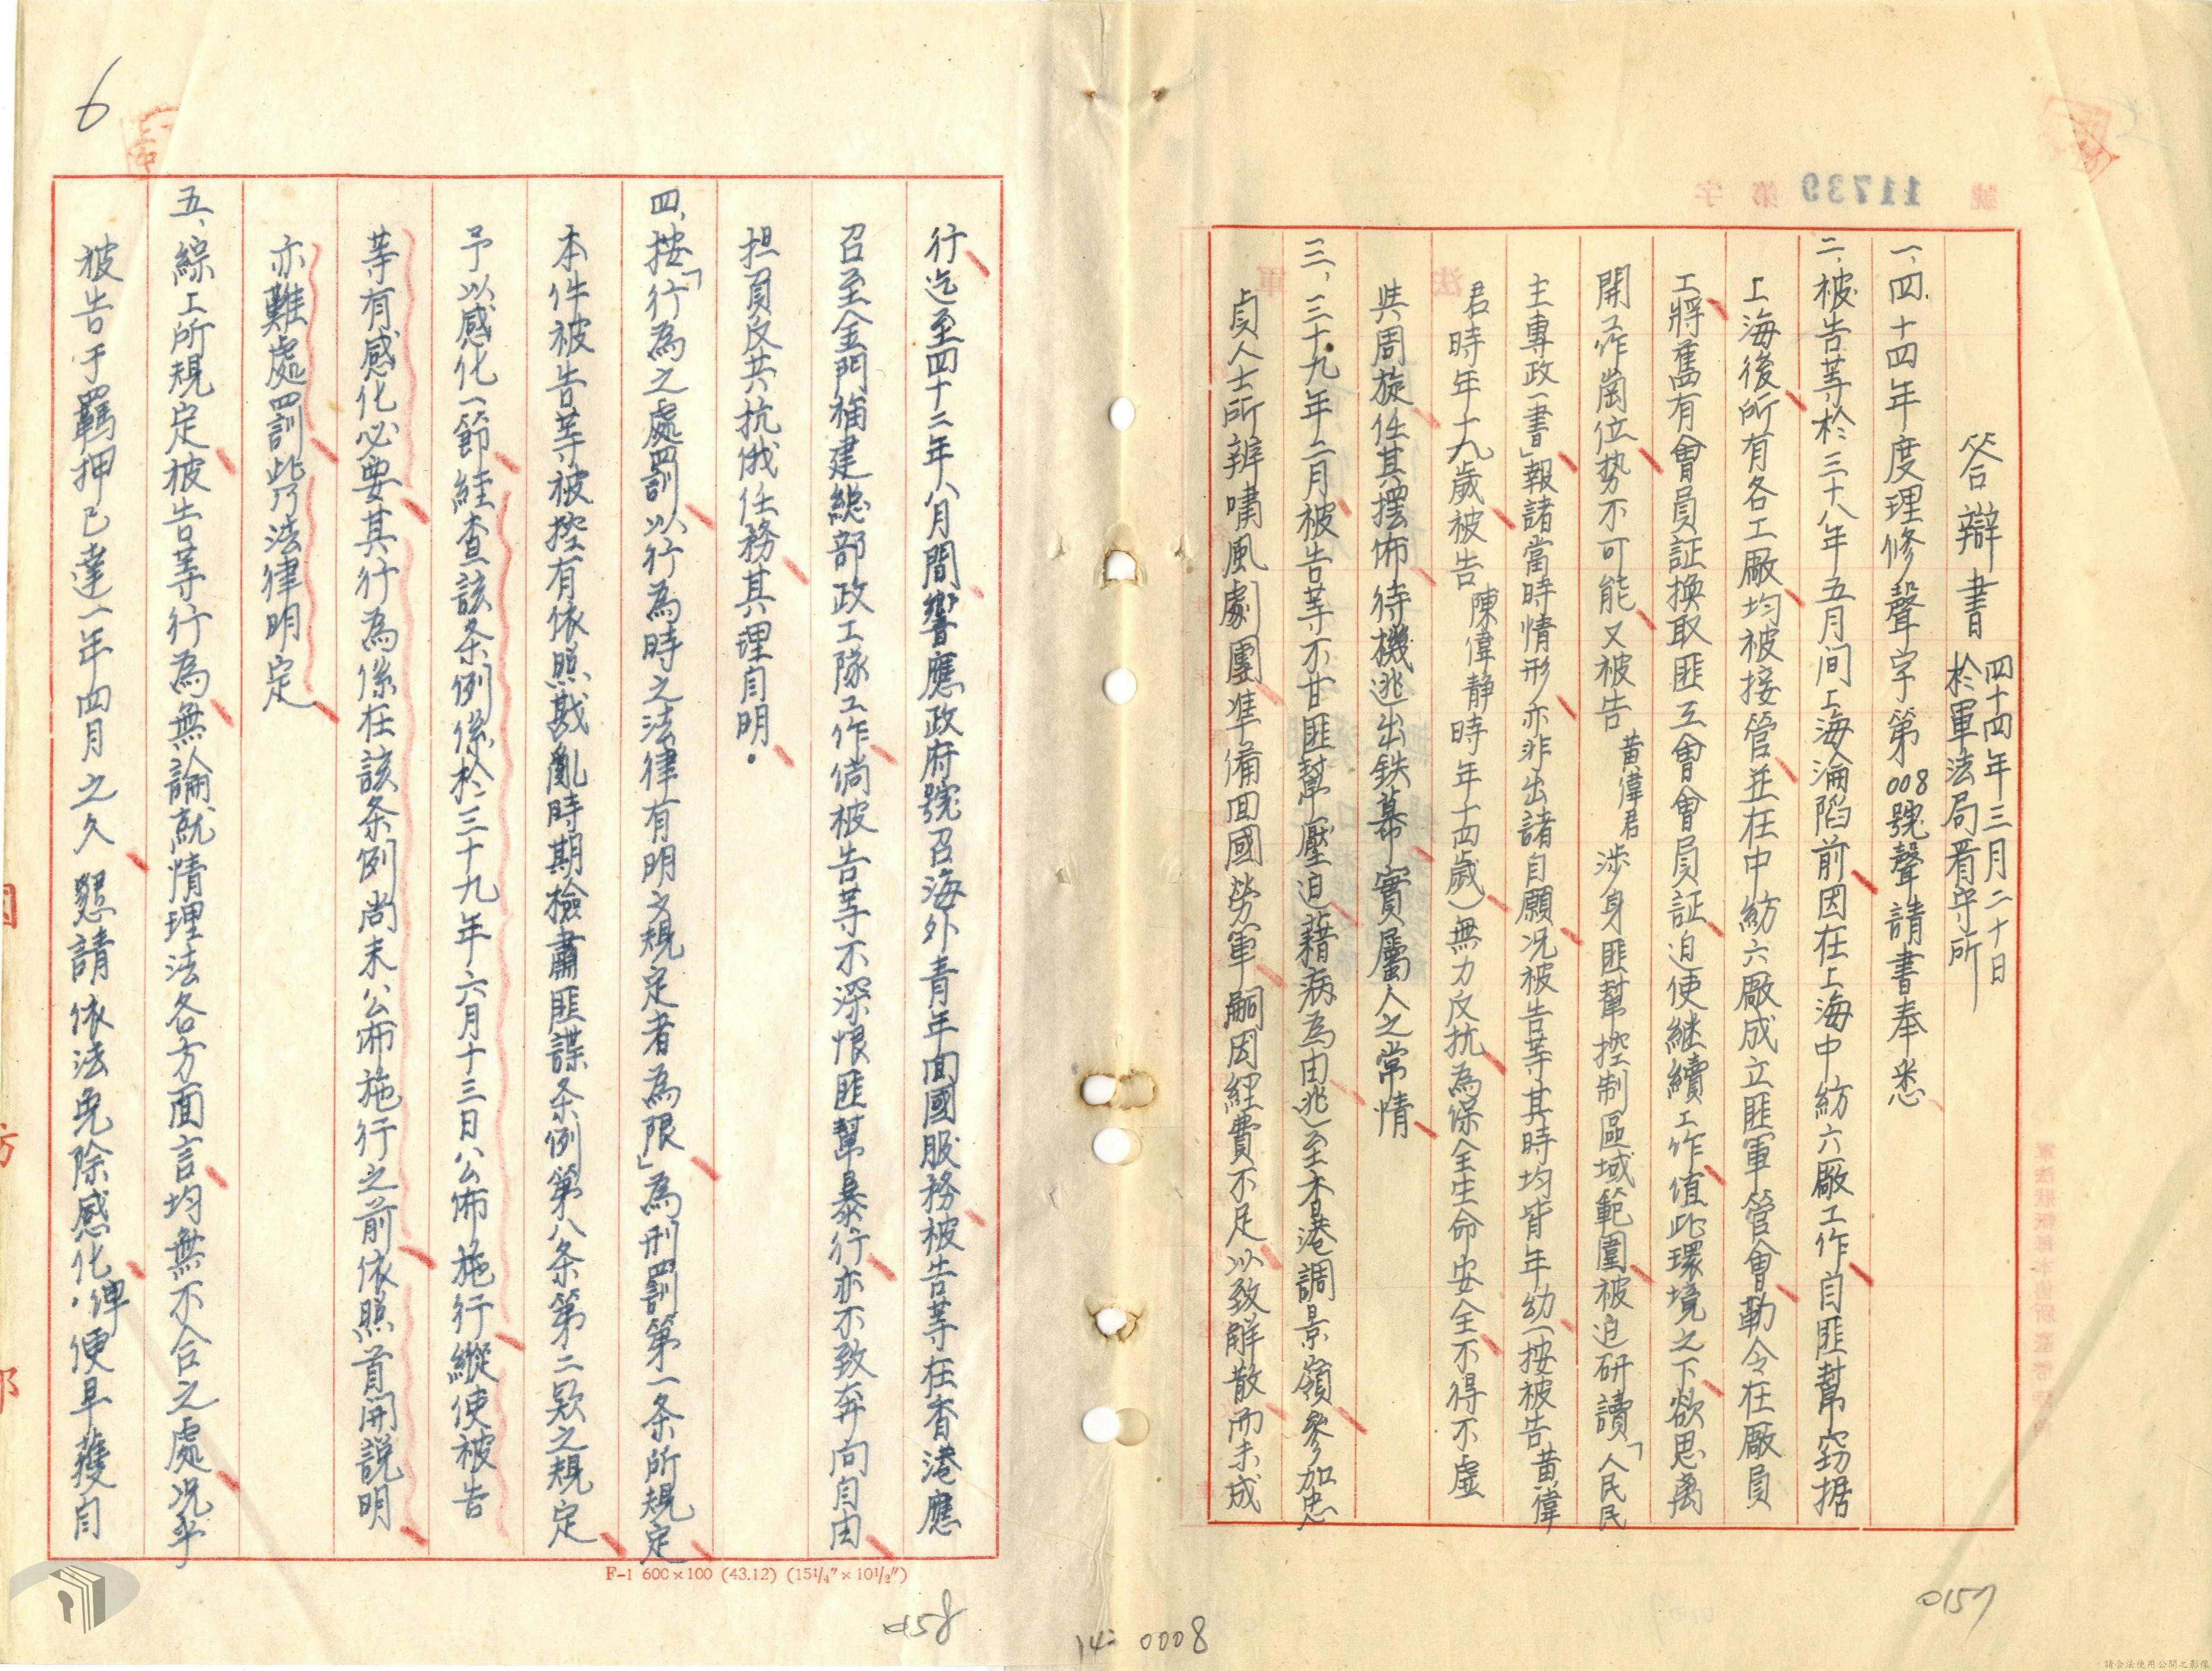 答辯書 四十四年三月二十日
於軍法局看守所
一、四十四年度理修聲字第008號聲請書奉悉
二、被告等於三十八年五月间上海淪陷前因在上海中紡六廠工作自匪幫窃据
上海後所有各工廠均被接管並在中紡六廠成立匪軍管會勒令在廠員
工將舊有會員証換取匪工會會員証迫使継續工作值此環境之下欲思离
開工作崗位势不可能又被告黃偉君涉身匪幫控制區域範圍被迫研讀「人民民
主專政一書」報諸當時情形亦非出諸自願况被告等其時均皆年幼(按被告黃偉
君時年十九歲被告陳偉静時年十四歲)無力反抗為保全生命安全不得不虛
與周旋任其擺佈待機逃出鉄幕實屬人之常情
三、三十九年二月被告等不甘匪幫壓迫藉病為由逃至香港調景嶺參加忠
貞人士所辦嘯風劇團準備回國勞軍嗣因経費不足以致解散而未成
行迄至四十二年八月間響應政府號召海外青年回國服務被告等在香港應
召至金門福建總部政工隊工作倘被告等不深恨匪幫暴行亦不致奔向自由
担負反共抗俄任務其理自明.
四、按「行為之處罰以行為時之法律有明文規定者為限」為刑罰第一条所規定
本件被告等被控有依照戡亂時期檢肅匪諜条例第八条第二欵之規定
予以感化一節経查該条例係於三十九年六月十三日公佈施行縱使被告
等有感化必要其行為係在該条例尚未公佈施行之前依照首開説明
亦難處罰此乃法律明定
五、綜上所規定被告等行為無論就情理法各方面言均無不合之處况乎
被告于羈押已達一年四月之久懇請依法免除感化.俾便早獲自
F-1 600×100 (43.12) (15¼″×10½″)
6
0157
0158
14= 0008
11739
號
第
字
請合法使用公開之影像